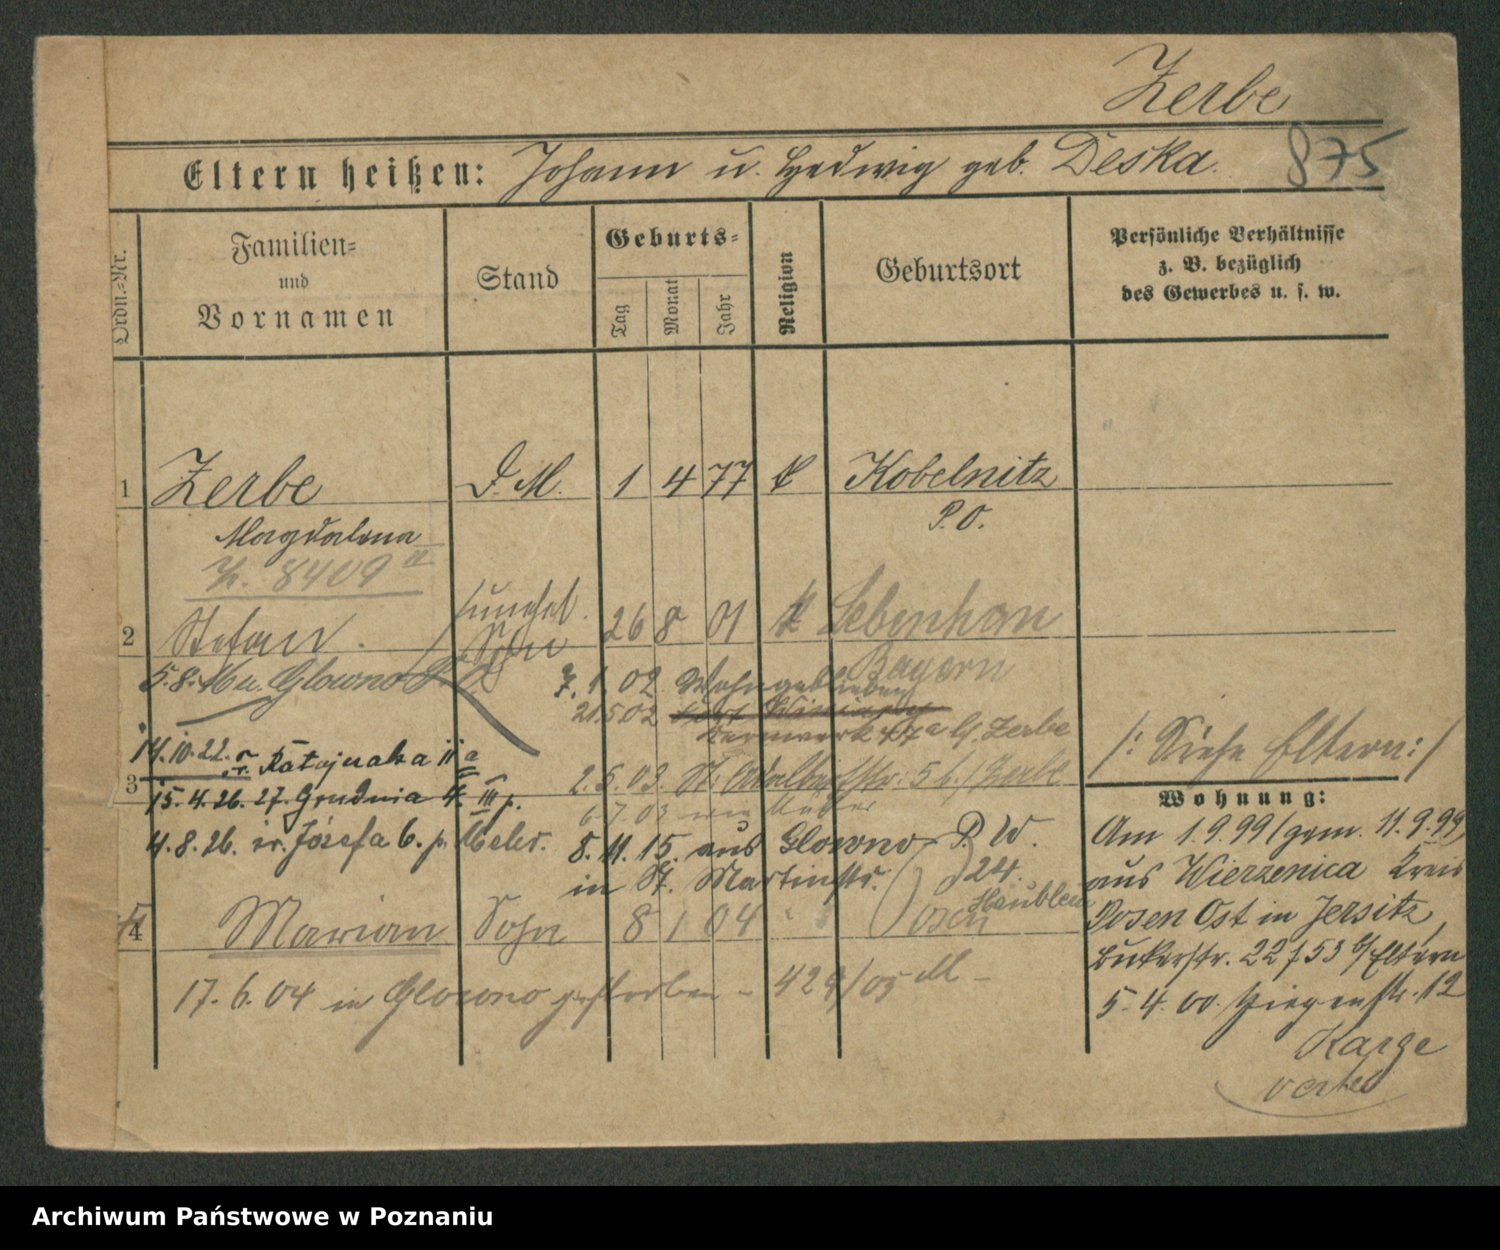 Zerbe
875
Eltern heißen: Johann u. Hedwig geb. Deska.
Ordn.-Nr.
Familien-
und
Vornamen
Stand
Geburts-
Tag
Monat
Jahr
Religion
Geburtsort
Persönliche Verhältnisse
z. B. bezüglich
des Gewerbes u. s. w.
1 Zerbe D. M. 1 4 77 k Kobelnitz
Magdalena P. O.
8409 a
2 Stefan Sohn 26 8 01 k Lebenhan
Bayern
5.8. Glowno
7. 1. 02
21.5.02
/: Siehe Eltern: /
14.10.22. Ratajczaka 11 a
3
15. 4. 26. 27. Grudnia 4. III p.
2. 5. 03. St. Adalbertstr. 5 b/ Zerbe
6.7.03
4. 8. 26. św. Józefa 6. p.
8. 11. 15. aus Glowno P. O. W.
in St. Martinstr. 24.
4 Marian Sohn 8 1 04
17. 6. 04 in Glowno gestorben - 429/05 M -
Wohnung:
Am 1.9.99 /gem. 11.9.99/
aus Wierzenica Kreis
Posen Ost in Jersitz,
Bukerstr. 22/53 b/ Eltern
5. 4. 00. Ziegenstr. 12
Karge
verte